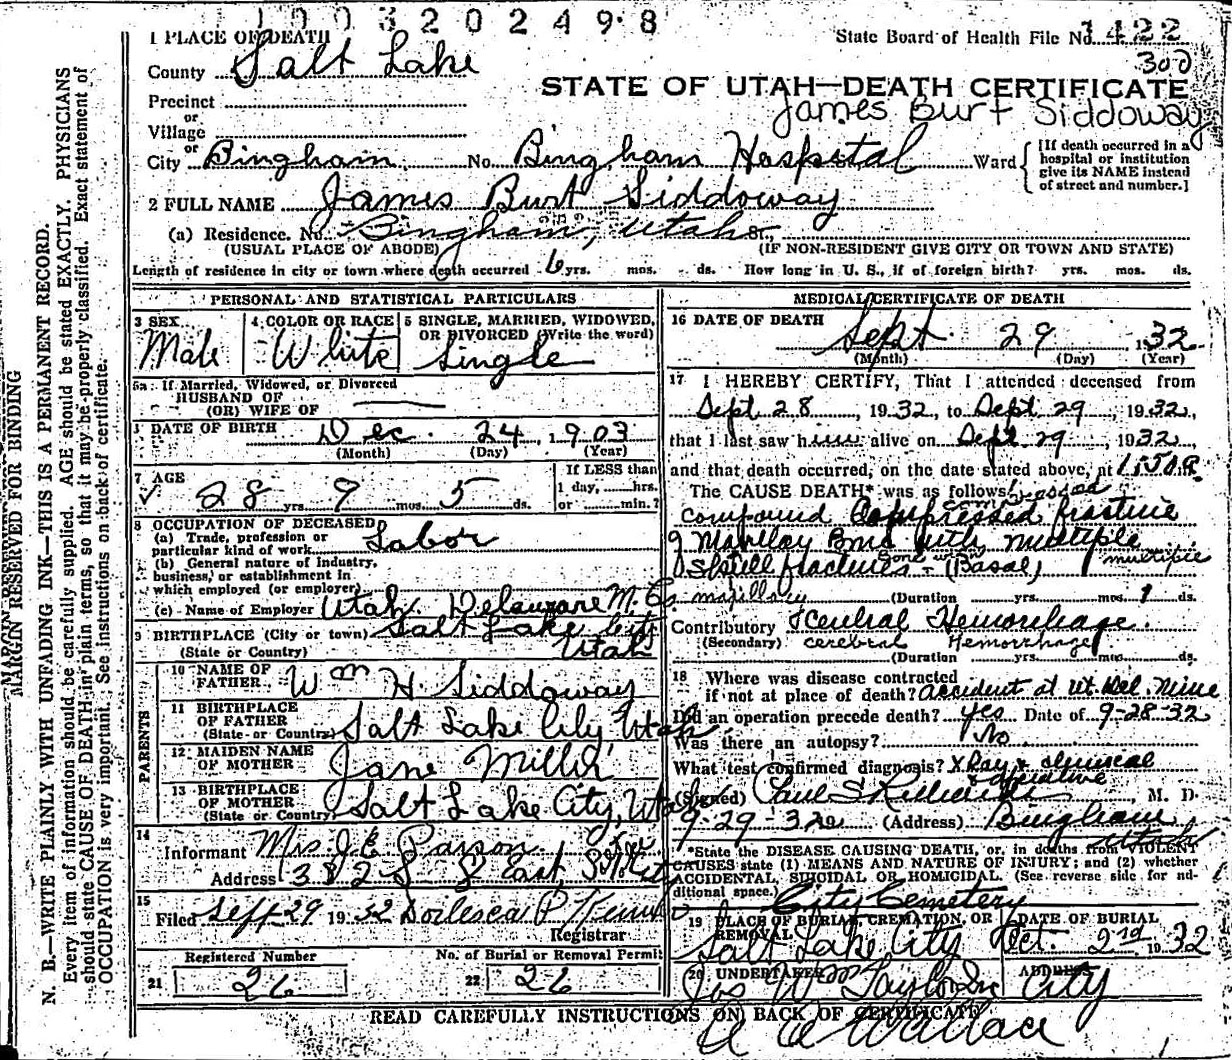 1003202498
1 PLACE OF DEATH
State Board of Health File No. 1422
300
County Salt Lake
STATE OF UTAH—DEATH CERTIFICATE
James Burt Siddoway
Precinct
or
Village
or
City Bingham No. Bingham Hospital Ward
[If death occurred in a
hospital or institution
give its NAME instead
of street and number.]
2 FULL NAME James Burt Siddoway
(a) Residence. No. Bingham, Utah St.
(USUAL PLACE OF ABODE) (IF NON-RESIDENT GIVE CITY OR TOWN AND STATE)
Length of residence in city or town where death occurred 6 yrs. mos. ds. How long in U. S., if of foreign birth? yrs. mos. ds.
PERSONAL AND STATISTICAL PARTICULARS
3 SEX
Male
4 COLOR OR RACE
White
5 SINGLE, MARRIED, WIDOWED,
OR DIVORCED (Write the word)
Single
5a If Married, Widowed, or Divorced
HUSBAND OF
(OR) WIFE OF
DATE OF BIRTH Dec. 24, 1903
(Month) (Day) (Year)
7 AGE
28 yrs. 9 mos. 5 ds.
If LESS than
1 day, hrs.
or min.?
8 OCCUPATION OF DECEASED
(a) Trade, profession or
particular kind of work Labor
(b) General nature of industry,
business, or establishment in
which employed (or employer)
(c) Name of Employer Utah Delaware M. Co.
9 BIRTHPLACE (City or town) Salt Lake City
(State or Country) Utah
PARENTS
10 NAME OF
FATHER Wm H. Siddoway
11 BIRTHPLACE
OF FATHER
(State or Country) Salt Lake City Utah
12 MAIDEN NAME
OF MOTHER Jane Miller
13 BIRTHPLACE
OF MOTHER
(State or Country) Salt Lake City, Utah
14
Informant Mrs. J. E. Parson
Address 382 S 8 East
15
Filed Sept 29 1932
Registrar
Registered Number
21 26
No. of Burial or Removal Permit
22 26
MEDICAL CERTIFICATE OF DEATH
16 DATE OF DEATH
Sept 29 1932
(Month) (Day) (Year)
17 I HEREBY CERTIFY, That I attended deceased from
Sept 28, 1932, to Sept 29, 1932,
that I last saw him alive on Sept 29, 1932
and that death occurred, on the date stated above, at
The CAUSE DEATH* was as follows:
compound Compressed fracture
of Maxillary Bone with multiple
Skull fractures - (Basal) multiple
maxillary (Duration yrs. mos. 1 ds.
Contributory Cerebral Hemorrhage
(Secondary) cerebral Hemorrhage
(Duration yrs. mos. ds.
18 Where was disease contracted
if not at place of death? accident at Ut. Del. Mine
Did an operation precede death? yes Date of 9-28-32
Was there an autopsy? No
What test confirmed diagnosis? X Ray & clinical
& operative
(Signed) Paul S. , M. D.
9-29-32 (Address) Bingham
Utah
*State the DISEASE CAUSING DEATH, or, in deaths from VIOLENT
CAUSES state (1) MEANS AND NATURE OF INJURY; and (2) whether
ACCIDENTAL SUICIDAL OR HOMICIDAL. (See reverse side for ad-
ditional space.)
City Cemetery
19 PLACE OF BURIAL, CREMATION, OR
REMOVAL
Salt Lake City
DATE OF BURIAL
Oct. 2nd 1932
20 UNDERTAKER
Jos Wm Taylor Inc
ADDRESS
City
READ CAREFULLY INSTRUCTIONS ON BACK OF CERTIFICATE
A A Wallace
MARGIN RESERVED FOR BINDING
N. B.—WRITE PLAINLY WITH UNFADING INK—THIS IS A PERMANENT RECORD.
Every item of information should be carefully supplied. AGE should be stated EXACTLY. PHYSICIANS
should state CAUSE OF DEATH in plain terms, so that it may be properly classified. Exact statement of
OCCUPATION is very important. See instructions on back of certificate.